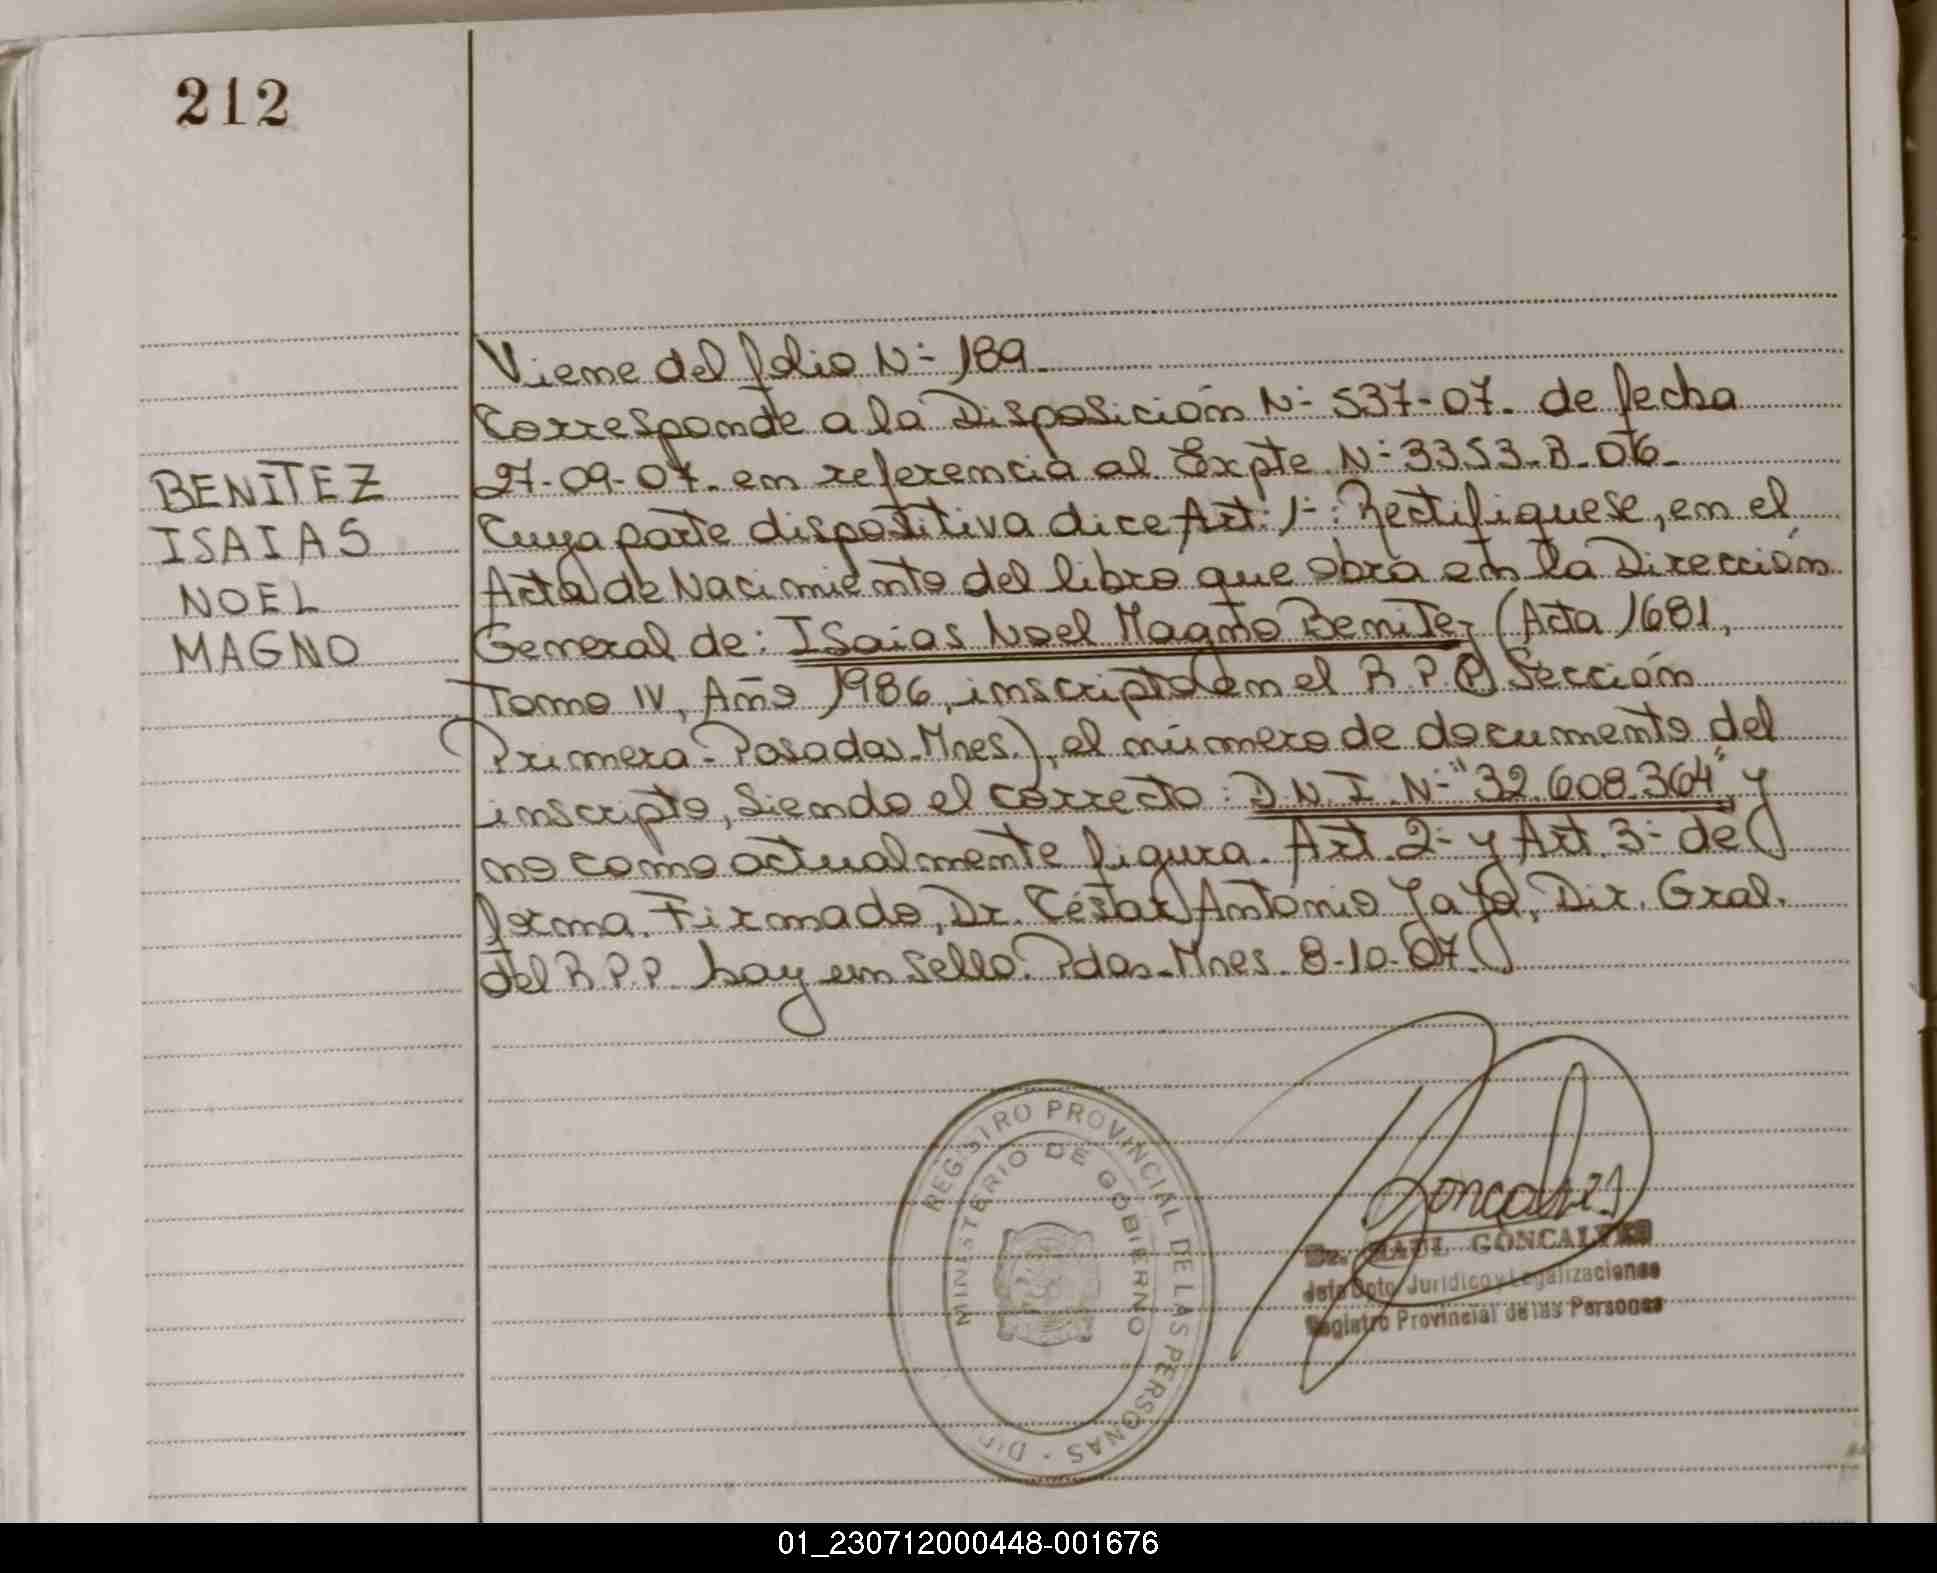 212
Viene del folio Nº 189.
Corresponde a la Disposición Nº 537-07. de fecha
BENITEZ 27-09-07. en referencia al Expte Nº 3353-B-06-
ISAIAS Cuya parte dispositiva dice Art: 1º: Rectifiquese, en el
NOEL Acta de Nacimiento del libro que obra en la Dirección
MAGNO General de: Isaias Noel Magno Benitez (Acta 1681,
Tomo IV, Año 1986, inscripto en el R.P.P. Sección
Primera- Posadas-Mnes.), el número de documento del
inscripto, siendo el correcto: D.N.I. Nº "32.608.364", y
no como actualmente figura. Art. 2º y Art. 3º de
forma. Firmado, Dr. César Antonio, Dir. Gral.
del R.P.P. hay un sello. Pdas-Mnes. 8-10-07.
REGISTRO PROVINCIAL DE LAS PERSONAS - DIR
MINISTERIO DE GOBIERNO
Goncalves
Dr. RAUL GONCALVES
Jefe Dpto Jurídico y Legalizaciones
Registro Provincial de las Personas
01_230712000448-001676